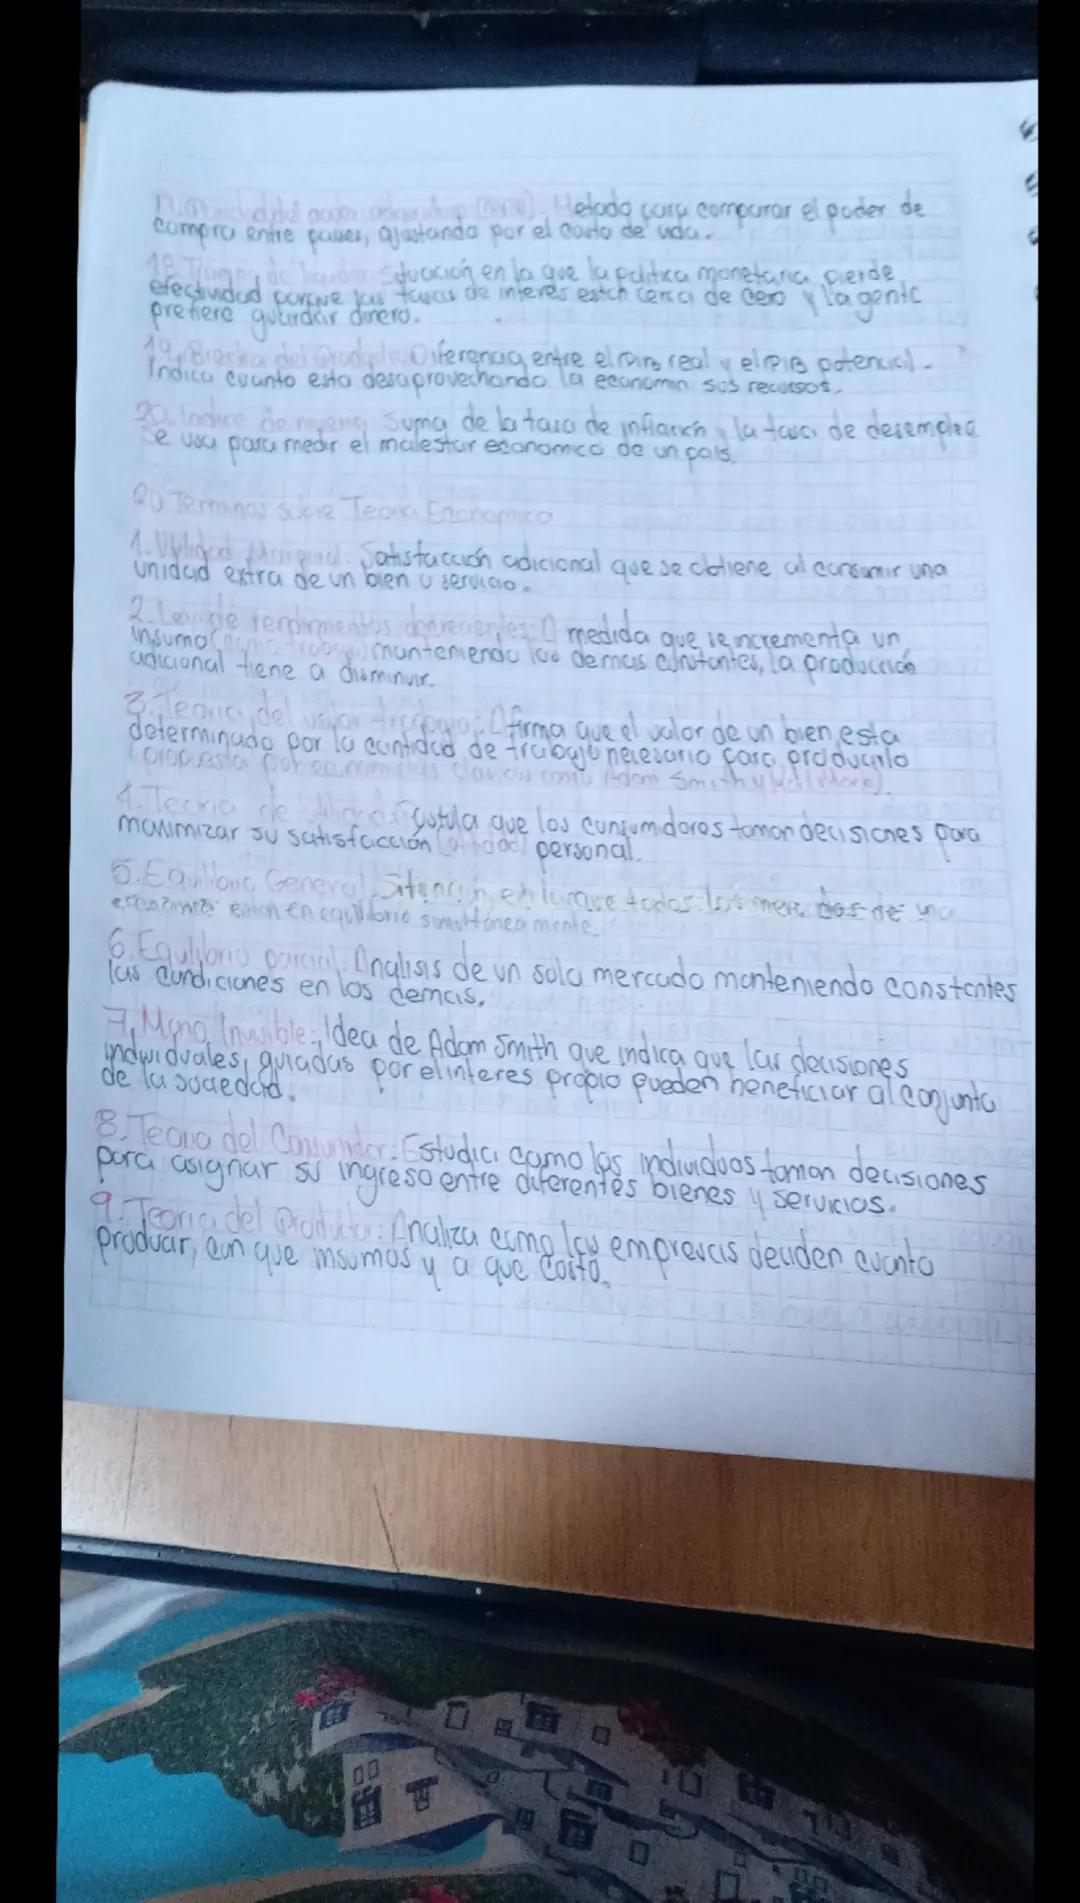 17. Paridad del poder adquisitivo (PPA). Metodo para comparar el poder de
compra entre paises, ajustando por el costo de vida.
18. Trampa de Situación en la que la politica monetaria pierde
efectividad porque las tasas de interes estch cerca de cero y la gente
prefiere guardar dinero.
19. Brecha del Producto. Diferencia entre el PIB real y el PIB potencial.
Indica cuanto esta desaprovechando la economia sus recursos.
20. Indice de miseria Suma de la tasa de inflación y la tasa de desempleo
Se usa para medir el malestar economico de un pais.
20 Terminos sobre Teoria Economica
1. Utilidad Marginal: Satisfacción adicional que se obtiene al consumir una
unidad extra de un bien u servicio.
2. Ley de rendimientos decrecientes: A medida que se incrementa un
insumo (como trabajo) manteniendo los demas constantes, la producción
adicional tiene a disminuir.
3. Teoria del valor trabajo: Afirma que el valor de un bien esta
determinado por la cantidad de trabajo necesario para producirlo
(propuesta por economistas clasicos como Adam Smith y Marx).
4. Teoria de Postula que los consumidores toman decisiones para
maximizar su satisfacción (utilidad) personal.
5. Equilibrio General. Situación en la que todos los mercados de una
economia estan en equilibrio simultáneamente.
6. Equilibrio parcial: Analisis de un solo mercado manteniendo constantes
las condiciones en los demas.
7. Mano Invisible: Idea de Adam Smith que indica que las decisiones
individuales, guiadas por el interes propio pueden beneficiar al conjunto
de la sociedad.
8. Teoria del Consumidor: Estudia como los individuos toman decisiones
para asignar su ingreso entre diferentes bienes y servicios.
9. Teoria del Productor: Analiza como las empresas deciden cuanto
producir, con que insumos y a que costo.